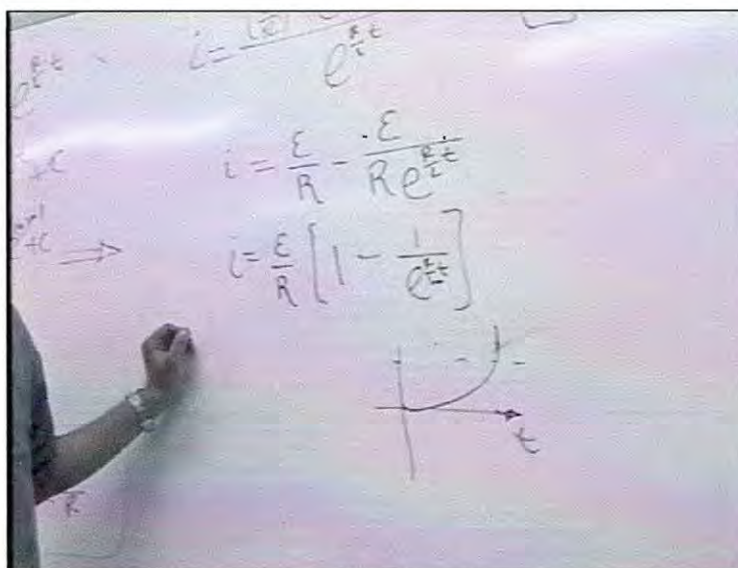 e^{\frac{R}{L}t}
i =
e^{\frac{R}{L}t}
+C
i = \frac{ε}{R} - \frac{ε}{R e^{\frac{R}{L}t}}
+C ⇒ i = \frac{ε}{R} [1 - \frac{1}{e^{\frac{R}{L}t}}]
t
R